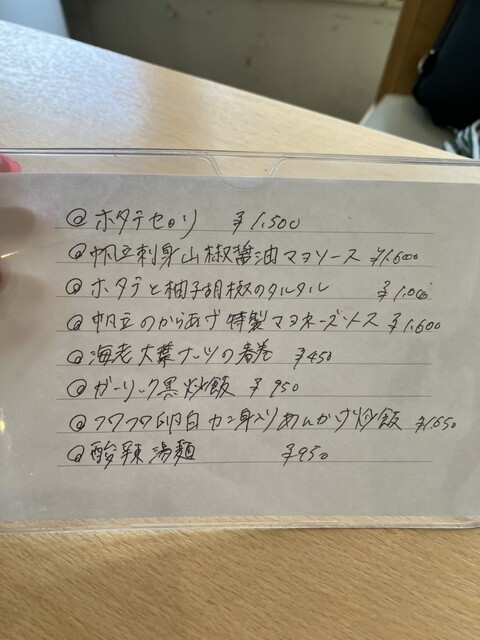 ◎ ホタテセロリ ¥1,500
◎ 帆立刺身山椒醤油マヨソース ¥1,600
◎ ホタテと柚子胡椒のタルタル ¥1,000
◎ 帆立のからあげ 特製マヨネーズソース ¥1,600
◎ 海老大葉ナッツの春巻 ¥450
◎ ガーリック黒炒飯 ¥950
◎ フワフワ卵白カニ身入りあんかけ炒飯 ¥1,650
◎ 酸辣湯麺 ¥950